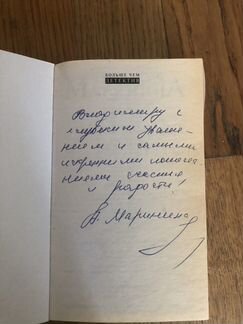 БОЛЬШЕ ЧЕМ
ДЕТЕКТИВ
Владимиру с
глубоким уваже-
нием и самыми
искренними пожела-
ниями счастья
и радости!
А. Маринина